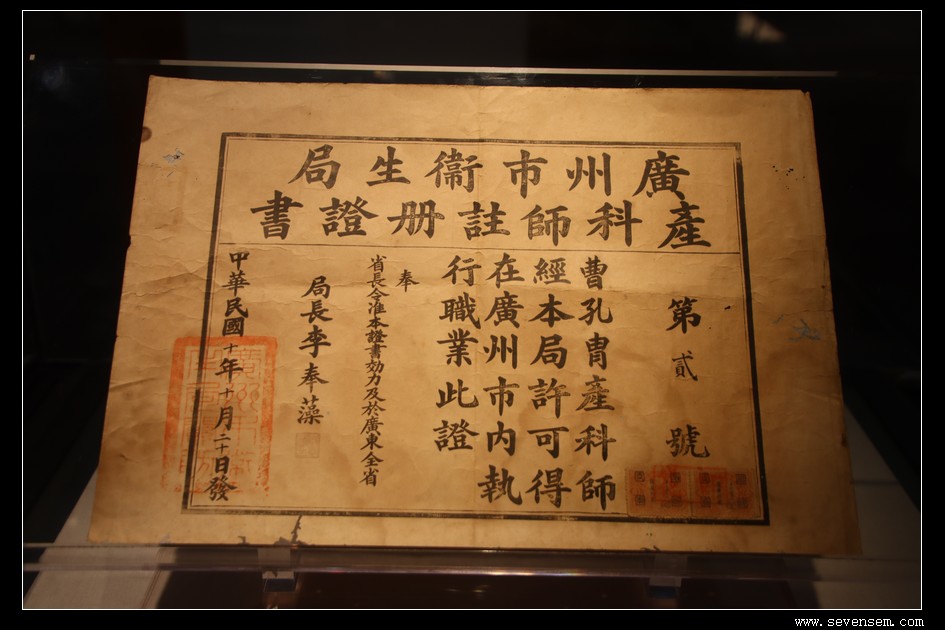 廣州市衞生局
產科師註册證書
第貳號
曹孔胄產科師
經本局許可得
在廣州市内執
行職業此證
奉
省長令准本證書効力及於廣東全省
局長李奉藻
中華民國十年十月二十日發
www.sevensem.com